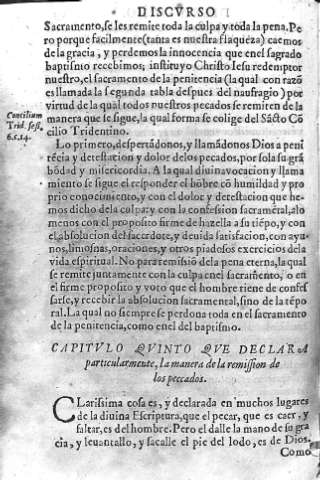 DISCVRSO
Sacramento, se les remite toda la culpa y toda la pena. Pe
ro porque facilmente (tanta es nuestra flaqueza) caemos
de la gracia, y perdemos la innocencia que en el sagrado
baptismo recebimos; instituyo Christo Iesu redemptor
nuestro, el sacramento de la penitencia (la qual con razõ
es llamada la segunda tabla despues del naufragio) por
virtud de la qual todos nuestros pecados se remiten de la
manera que se sigue, la qual forma se colige del Sãcto Cõ
cilio Tridentino.
Concilium
Trid. sess.
6.c.14.
Lo primero, despertãdonos, y llamãdonos Dios a peni
tẽcia y detestacion y dolor de los pecados, por sola su grã
bõdad y misericordia. A la qual diuina vocacion y llama
miento se sigue el responder el hõbre cõ humildad y pro
prio conocimiento, y con el dolor y detestacion que he-
mos dicho de la culpa: y con la confession sacramẽtal, alo
menos con el proposito firme de hazella a su tiẽpo, y con
el absolucion del sacerdote, y deuida satisfacion, con ayu-
nos, limosnas, oraciones, y otros piadosos exercicios de la
vida espiritual. No para remissiõ dela pena eterna, la qual
se remite juntamente con la culpa en el sacramẽto, o en
el firme proposito y voto que el hombre tiene de confes
sarse, y recebir la absolucion sacramental, sino de la tẽpo
ral. La qual no siempre se perdona toda en el sacramento
de la penitencia, como en el del baptismo.
CAPITVLO QVINTO QVE DECLARA
particularmente, la manera de la remission de
los peccados.
CLarissima cosa es, y declarada en muchos lugares
de la diuina Escriptura, que el pecar, que es caer, y
faltar, es del hombre. Pero el dalle la mano de su gra
cia, y leuantallo, y sacalle el pie del lodo, es de Dios.
Como